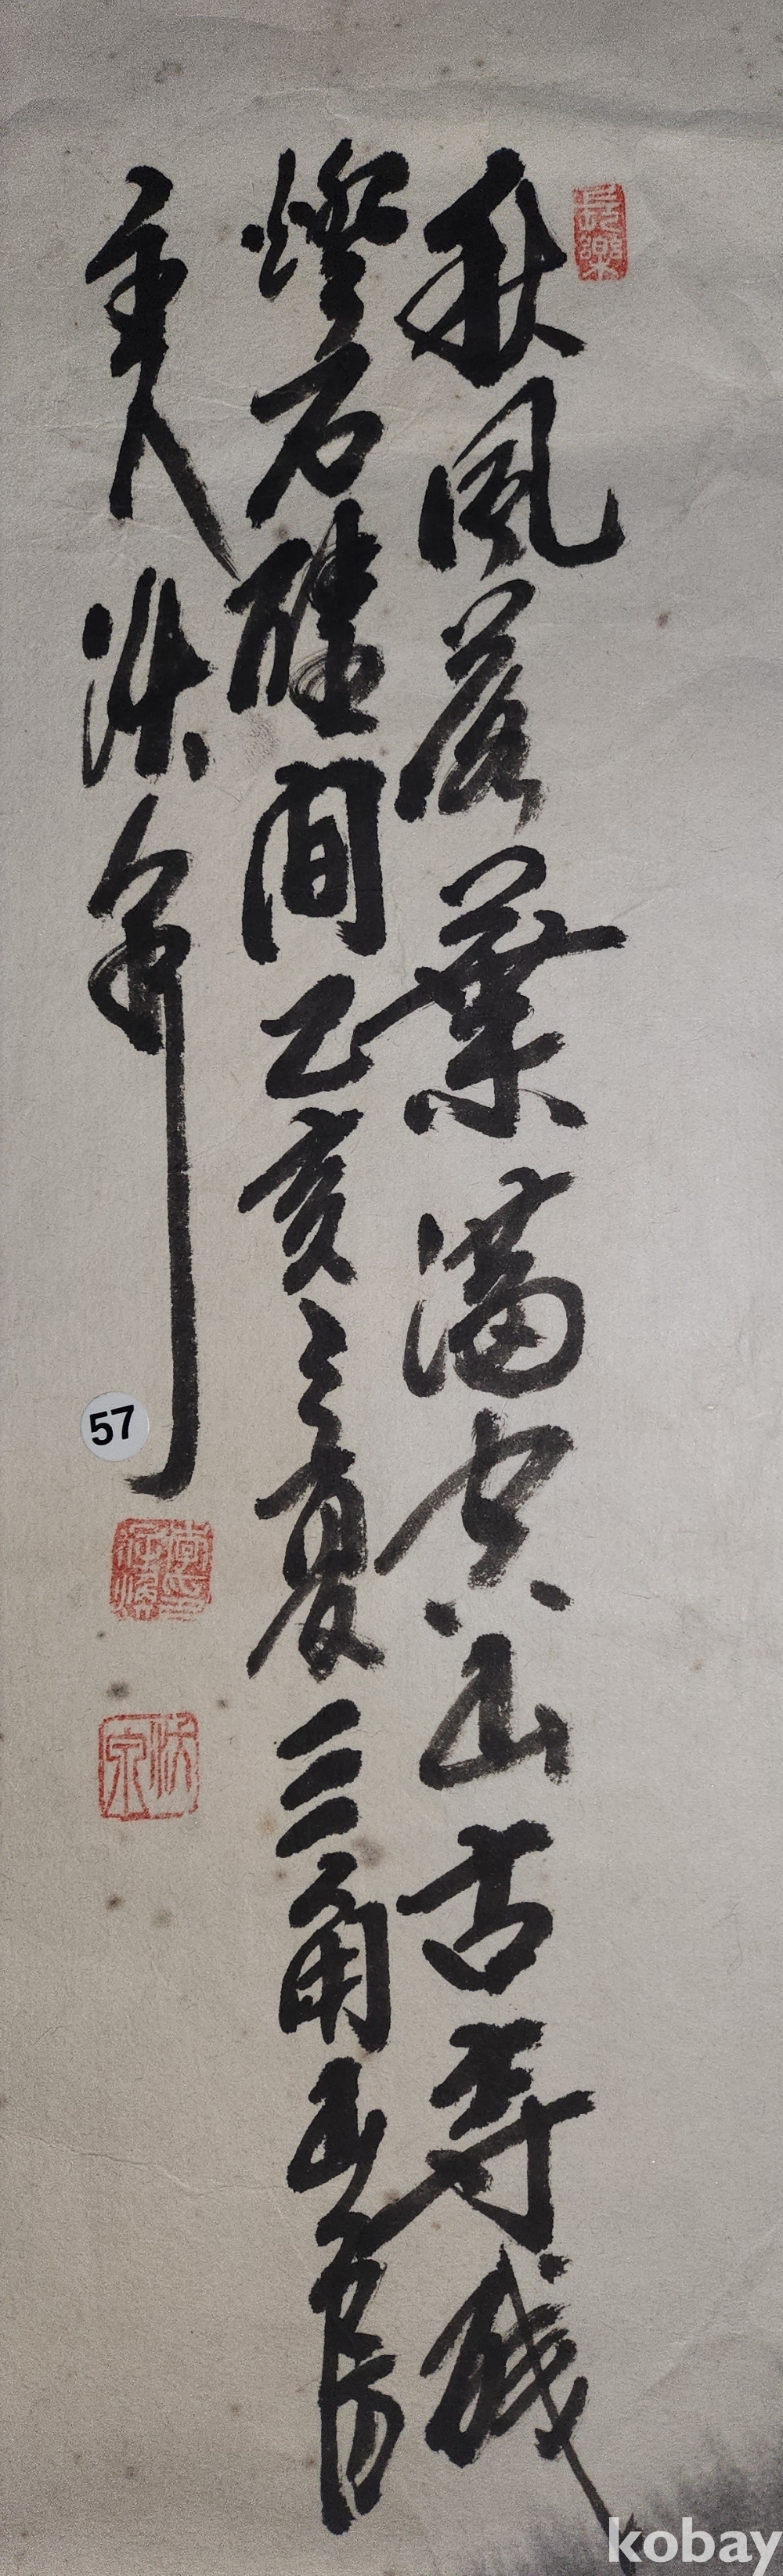 長樂
秋風落葉滿空山古寺殘
燈石壁間乙亥之夏三角山房
主人
57
kobay